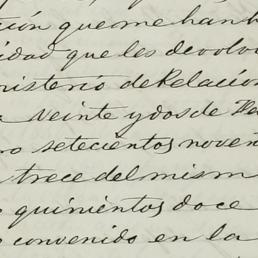 ción que me han h
idad que les devolv
nisterio de Relacion
veinte y dos de
o setecientos noven
trece del mism
quinientos doce
convenido en la